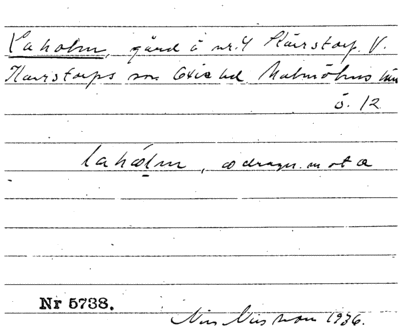 Laholm, gård å nr. 4 Kärrstorp, V.
Kärrstorps sn Oxie hd Malmöhus län
ö. 12
lahólm, o dragn. mot a
Nr 5738.
Nils Nilsson 1936.